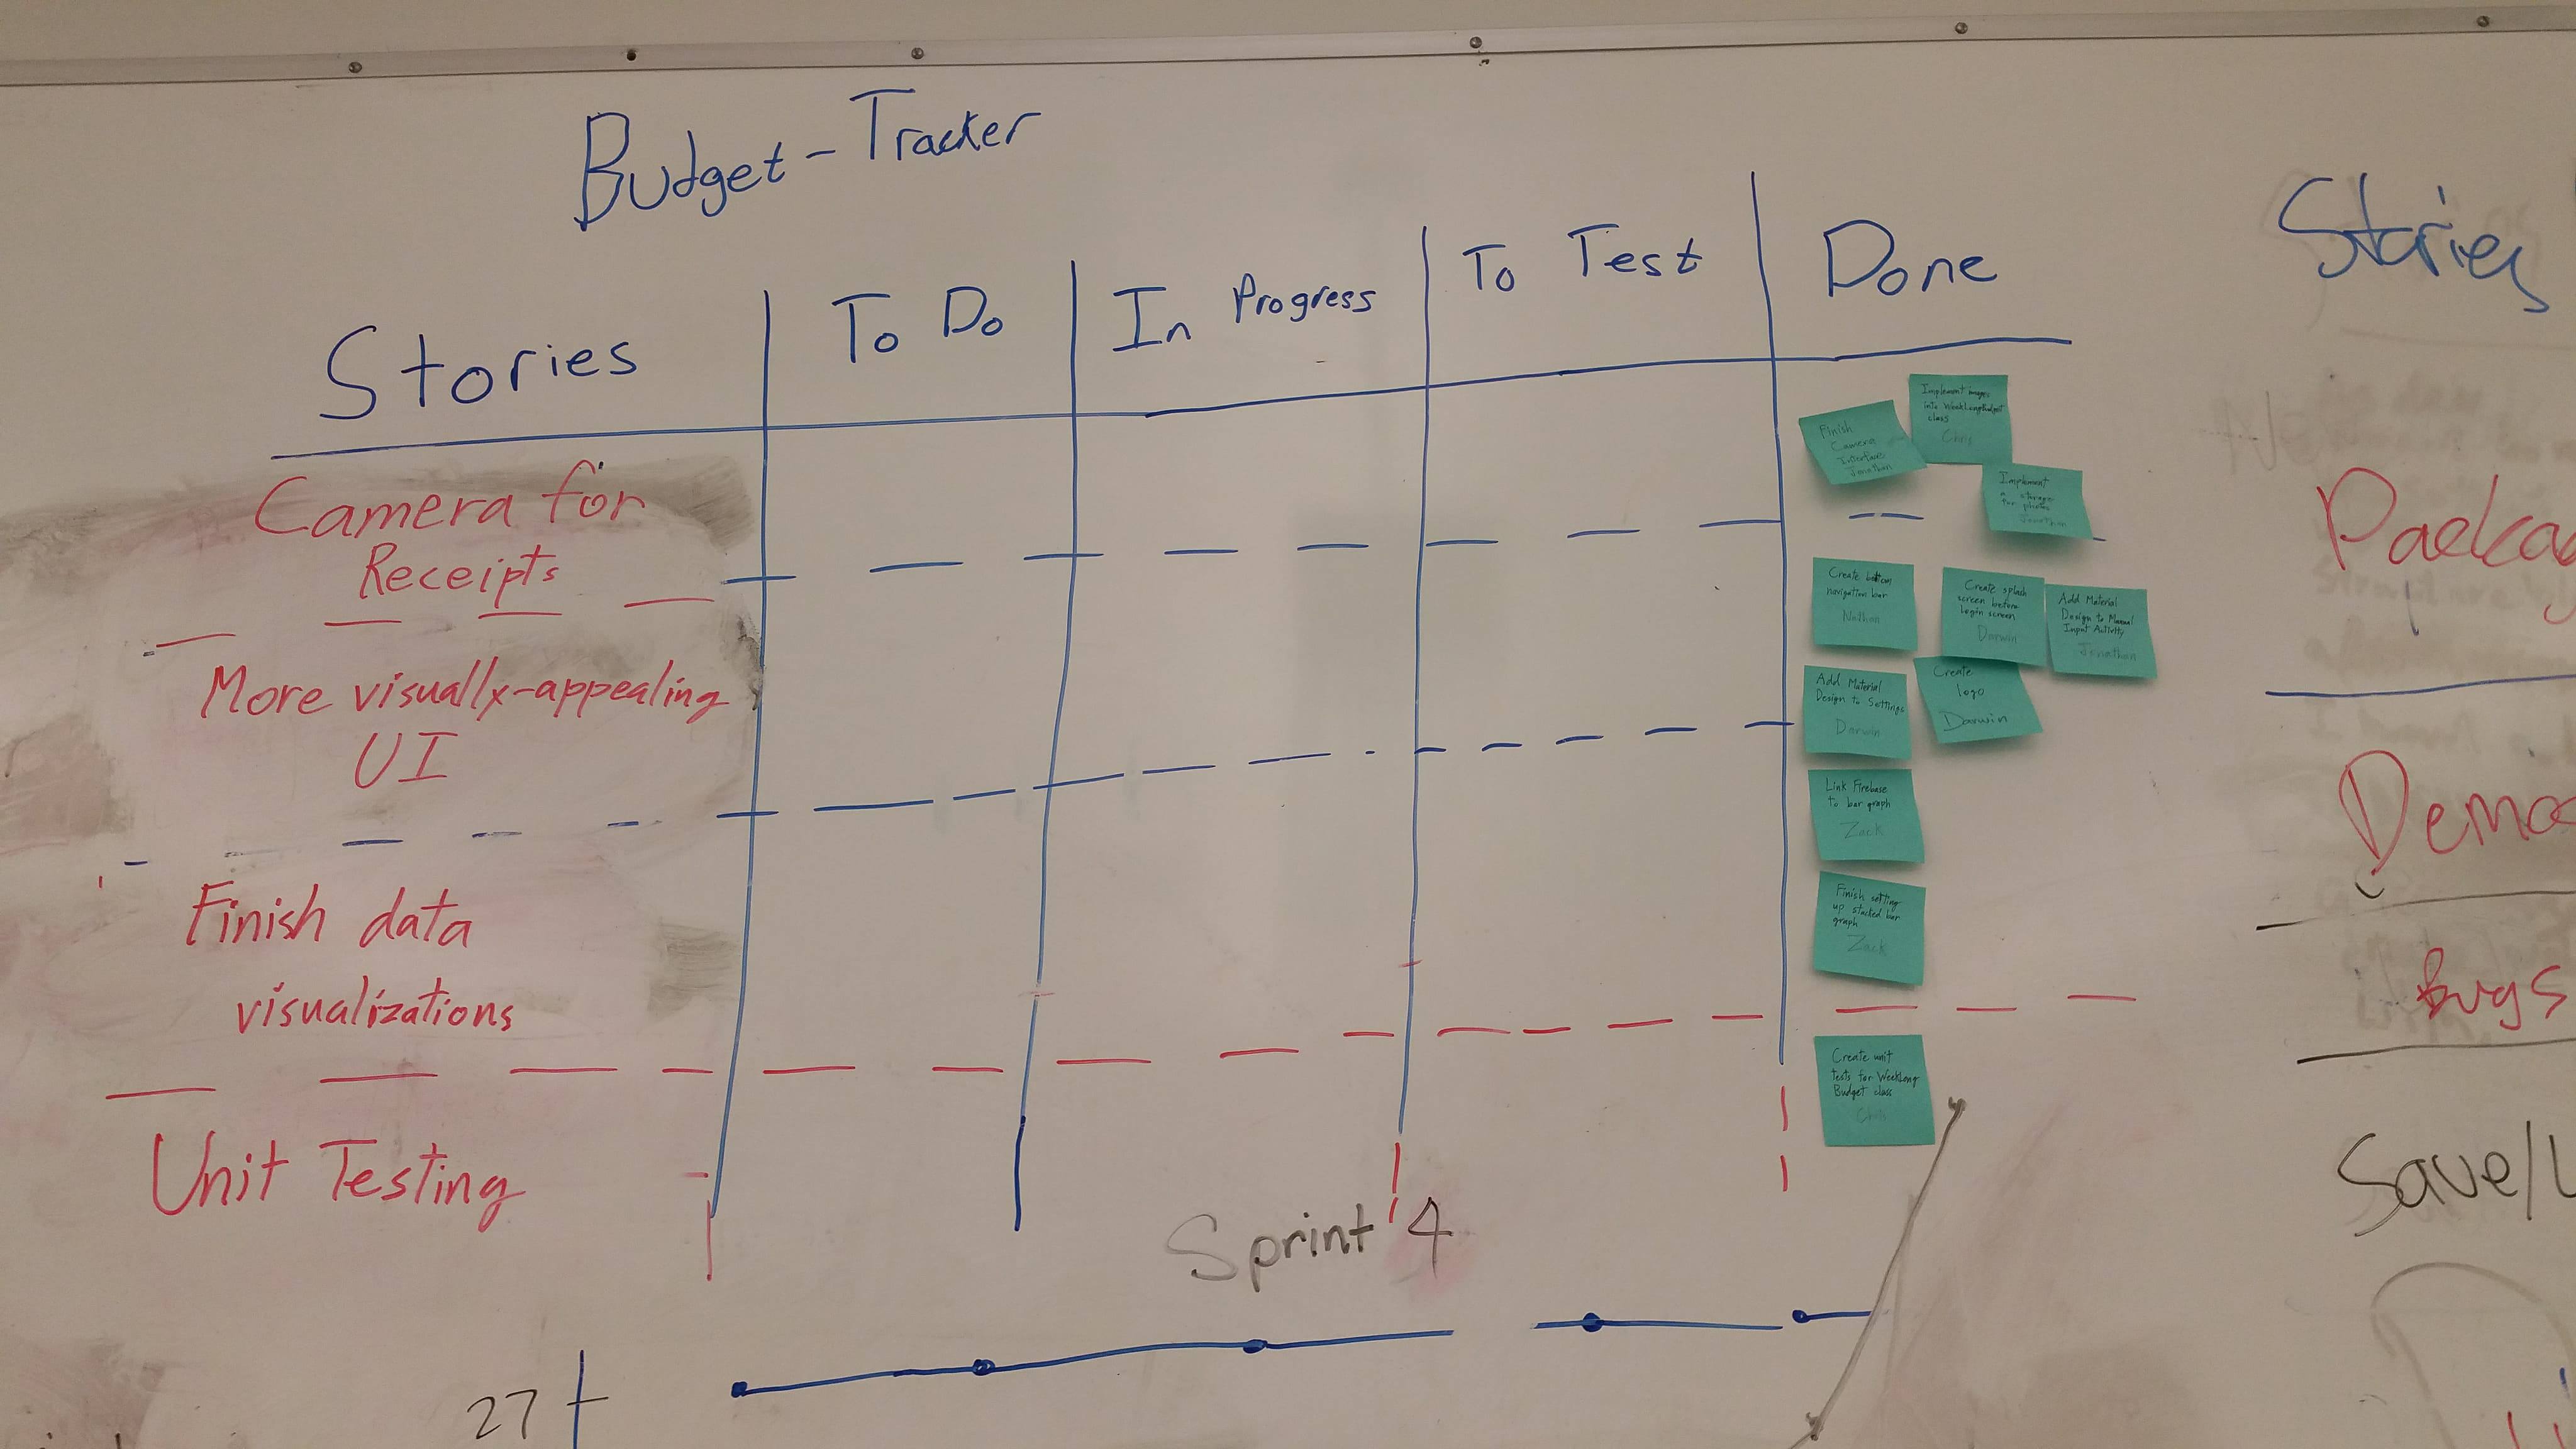 Budget-Tracker
Stories
To Do
In Progress
To Test
Done
Camera for
Receipts
Finish
Camera
Interface
Jonathan
Implement images
into WeekLongBudget
class
Chris
Implement
a storage
for photos
Jonathan
More visually-appealing
UI
Create bottom
navigation bar
Nathan
Create splash
screen before
login screen
Darwin
Add Material
Design to Manual
Input Activity
Jonathan
Add Material
Design to Settings
Darwin
Create
logo
Darwin
Finish data
visualizations
Link Firebase
to bar graph
Zack
Finish setting
up stacked bar
graph
Zack
Unit Testing
Create unit
tests for WeekLong
Budget class
Chris
Sprint 4
27
Stories
Packag
Demo
Bugs
Save/L